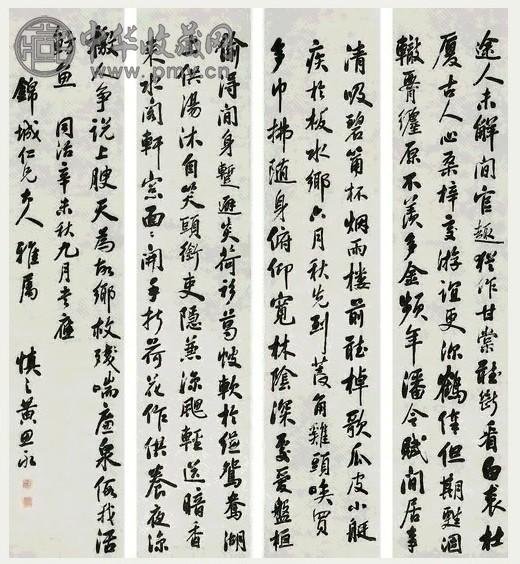 中华收藏网
www.pmcn
途人未解閒官趣猶作甘棠聽斷看白裘杜
廈古人心桑梓交游誼更深鶴俸但期甦涸
轍纏原不羨多金頻年潘令賦閒居事
清吸碧筩杯烟雨樓前聽棹歌瓜皮小艇
疾於板水鄉六月秋先到菱角雞頭喚買
多巾拂隨身俯仰寬林陰深處愛盤桓
偷得閒身蹔避炎荷衫葛帔軟於鴛鴦湖
水供湯沐自笑頭銜吏隱兼涼颸輕送暗香
來水閣軒窗面面開手折荷花作供養夜涼
人爭說上腴天為故鄉救殘喘廉泉我活
魚 同治辛未秋九月
錦城仁兄大人雅屬
慎之黃思永